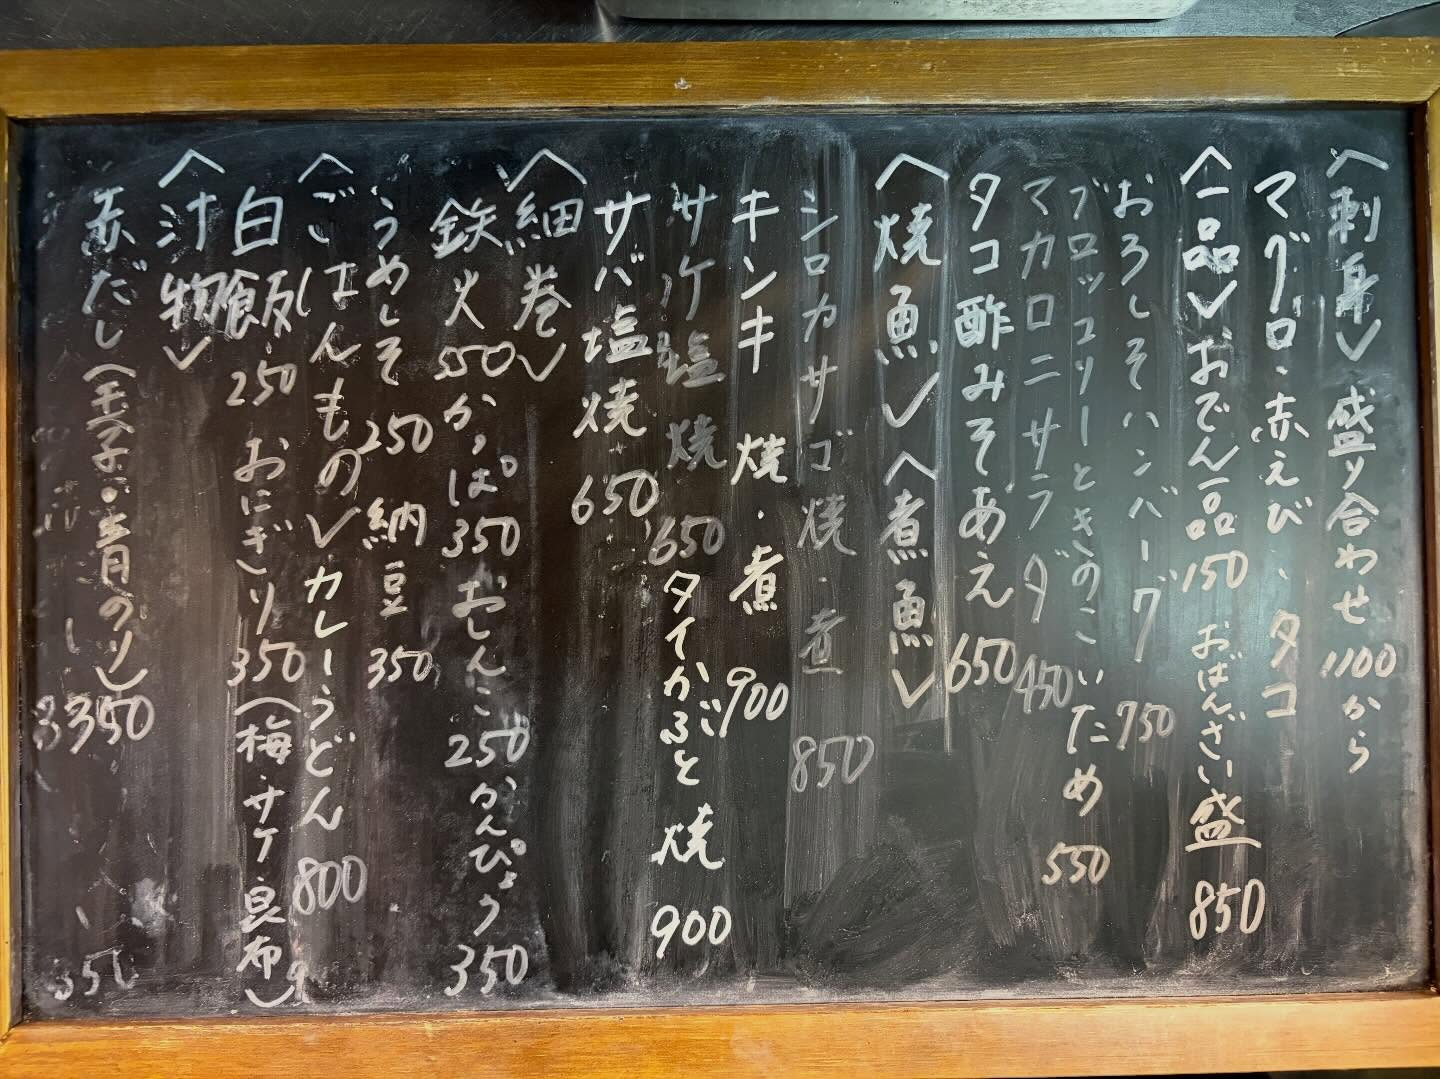 〈刺身〉盛り合わせ1100から
マグロ・赤えび、タコ
〈一品〉おでん一品150 おばんざい盛850
おろしそハンバーグ 750
ブロッコリーときのこいため 550
マカロニサラダ 450
タコ酢みそあえ 650
〈焼魚〉〈煮魚〉
シロカサゴ焼・煮 850
キンキ 焼・煮 900
サケ塩焼 650 タイかぶと焼 900
サバ塩焼 650
〈細巻〉
鉄火550 かっぱ350 おしんこ250 かんぴょう350
うめしそ 250 納豆 350
〈ごはんもの〉カレーうどん 800
白飯 250 おにぎり350(梅・サケ・昆布)
〈汁物〉
赤だし(玉子・青のり)350
350